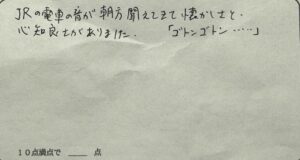 JRの電車の音が朝方聞えてきて懐かしさと、
心知良さがありました。 「ゴトンゴトン……」
10点満点で ___ 点